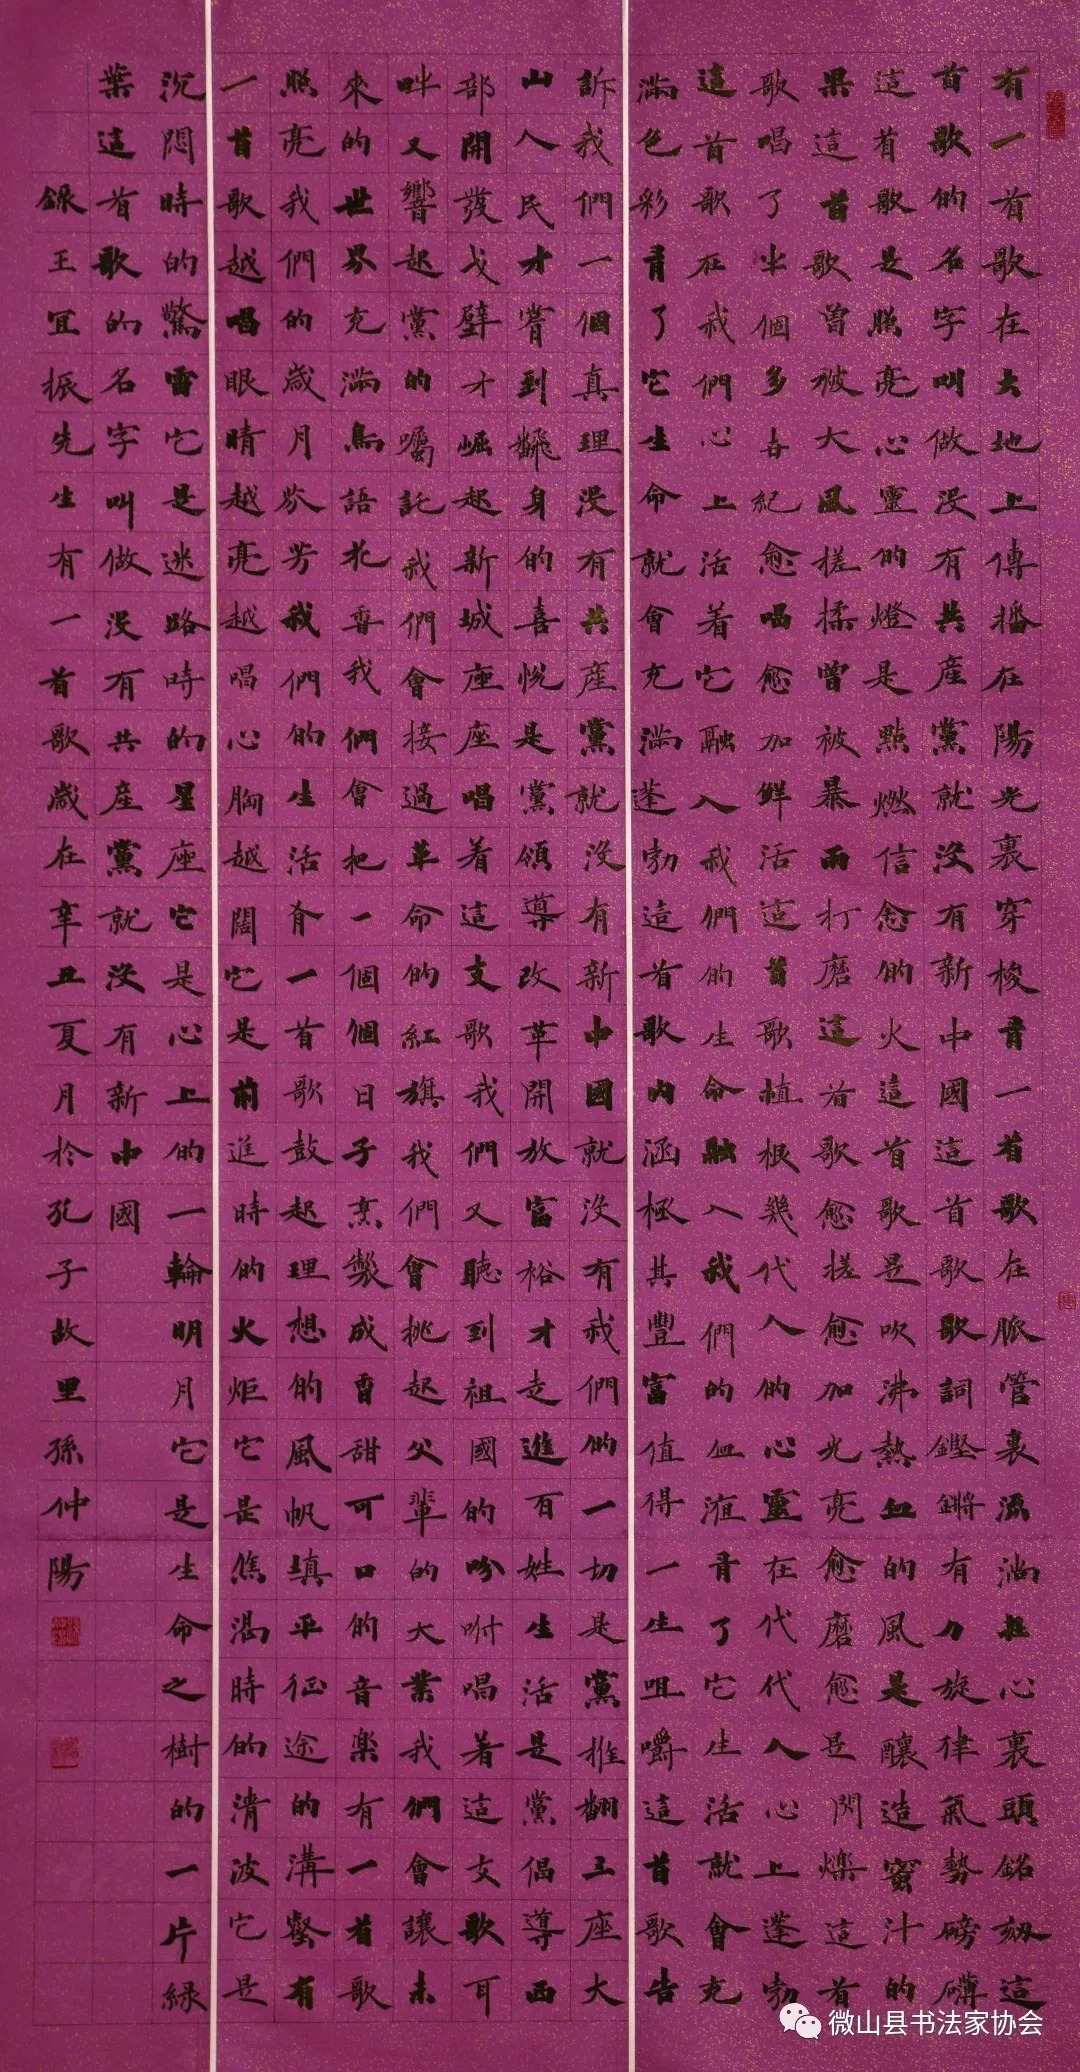 有一首歌在大地上傳播在陽光裏穿梭有一首歌在脈管裏流淌在心裏頭銘刻這
首歌的名字叫做没有共産黨就没有新中國這首歌歌詞鏗鏘有力旋律氣勢磅礴
這首歌是照亮心靈的燈是點燃信念的火這首歌是吹沸熱血的風是釀造蜜汁的
果這首歌曾被大風搓揉曾被暴雨打磨這首歌愈搓愈加光亮愈磨愈是閃爍這首
歌唱了半個多世紀愈唱愈加鮮活這首歌植根幾代人的心靈在代代人心上蓬勃
這首歌在我們心上活着它融入我們的生命融入我們的血液有了它生活就會充
滿色彩有了它生命就會充滿蓬勃這首歌内涵極其豐富值得一生咀嚼這首歌告
訴我們一個真理没有共産黨就没有新中國就没有我們的一切是黨推翻三座大
山人民才嘗到翻身的喜悦是黨領導改革開放富裕才走進百姓生活是黨倡導西
部開發戈壁才崛起新城座座唱着這支歌我們又聽到祖國的吩咐唱着這支歌耳
畔又響起黨的囑託我們會接過革命的紅旗我們會挑起父輩的大業我們會讓未
來的世界充滿鳥語花香我們會把一個個日子烹製成香甜可口的音樂有一首歌
照亮我們的歲月芬芳我們的生活有一首歌鼓起理想的風帆填平征途的溝壑有
一首歌越唱眼睛越亮越唱心胸越闊它是前進時的火炬它是焦渴時的清波它是
沉悶時的驚雷它是迷路時的星座它是心上的一輪明月它是生命之樹的一片緑
葉這首歌的名字叫做没有共産黨就没有新中國
録王宜振先生有一首歌歲在辛丑夏月於孔子故里孫仲陽
微山县书法家协会